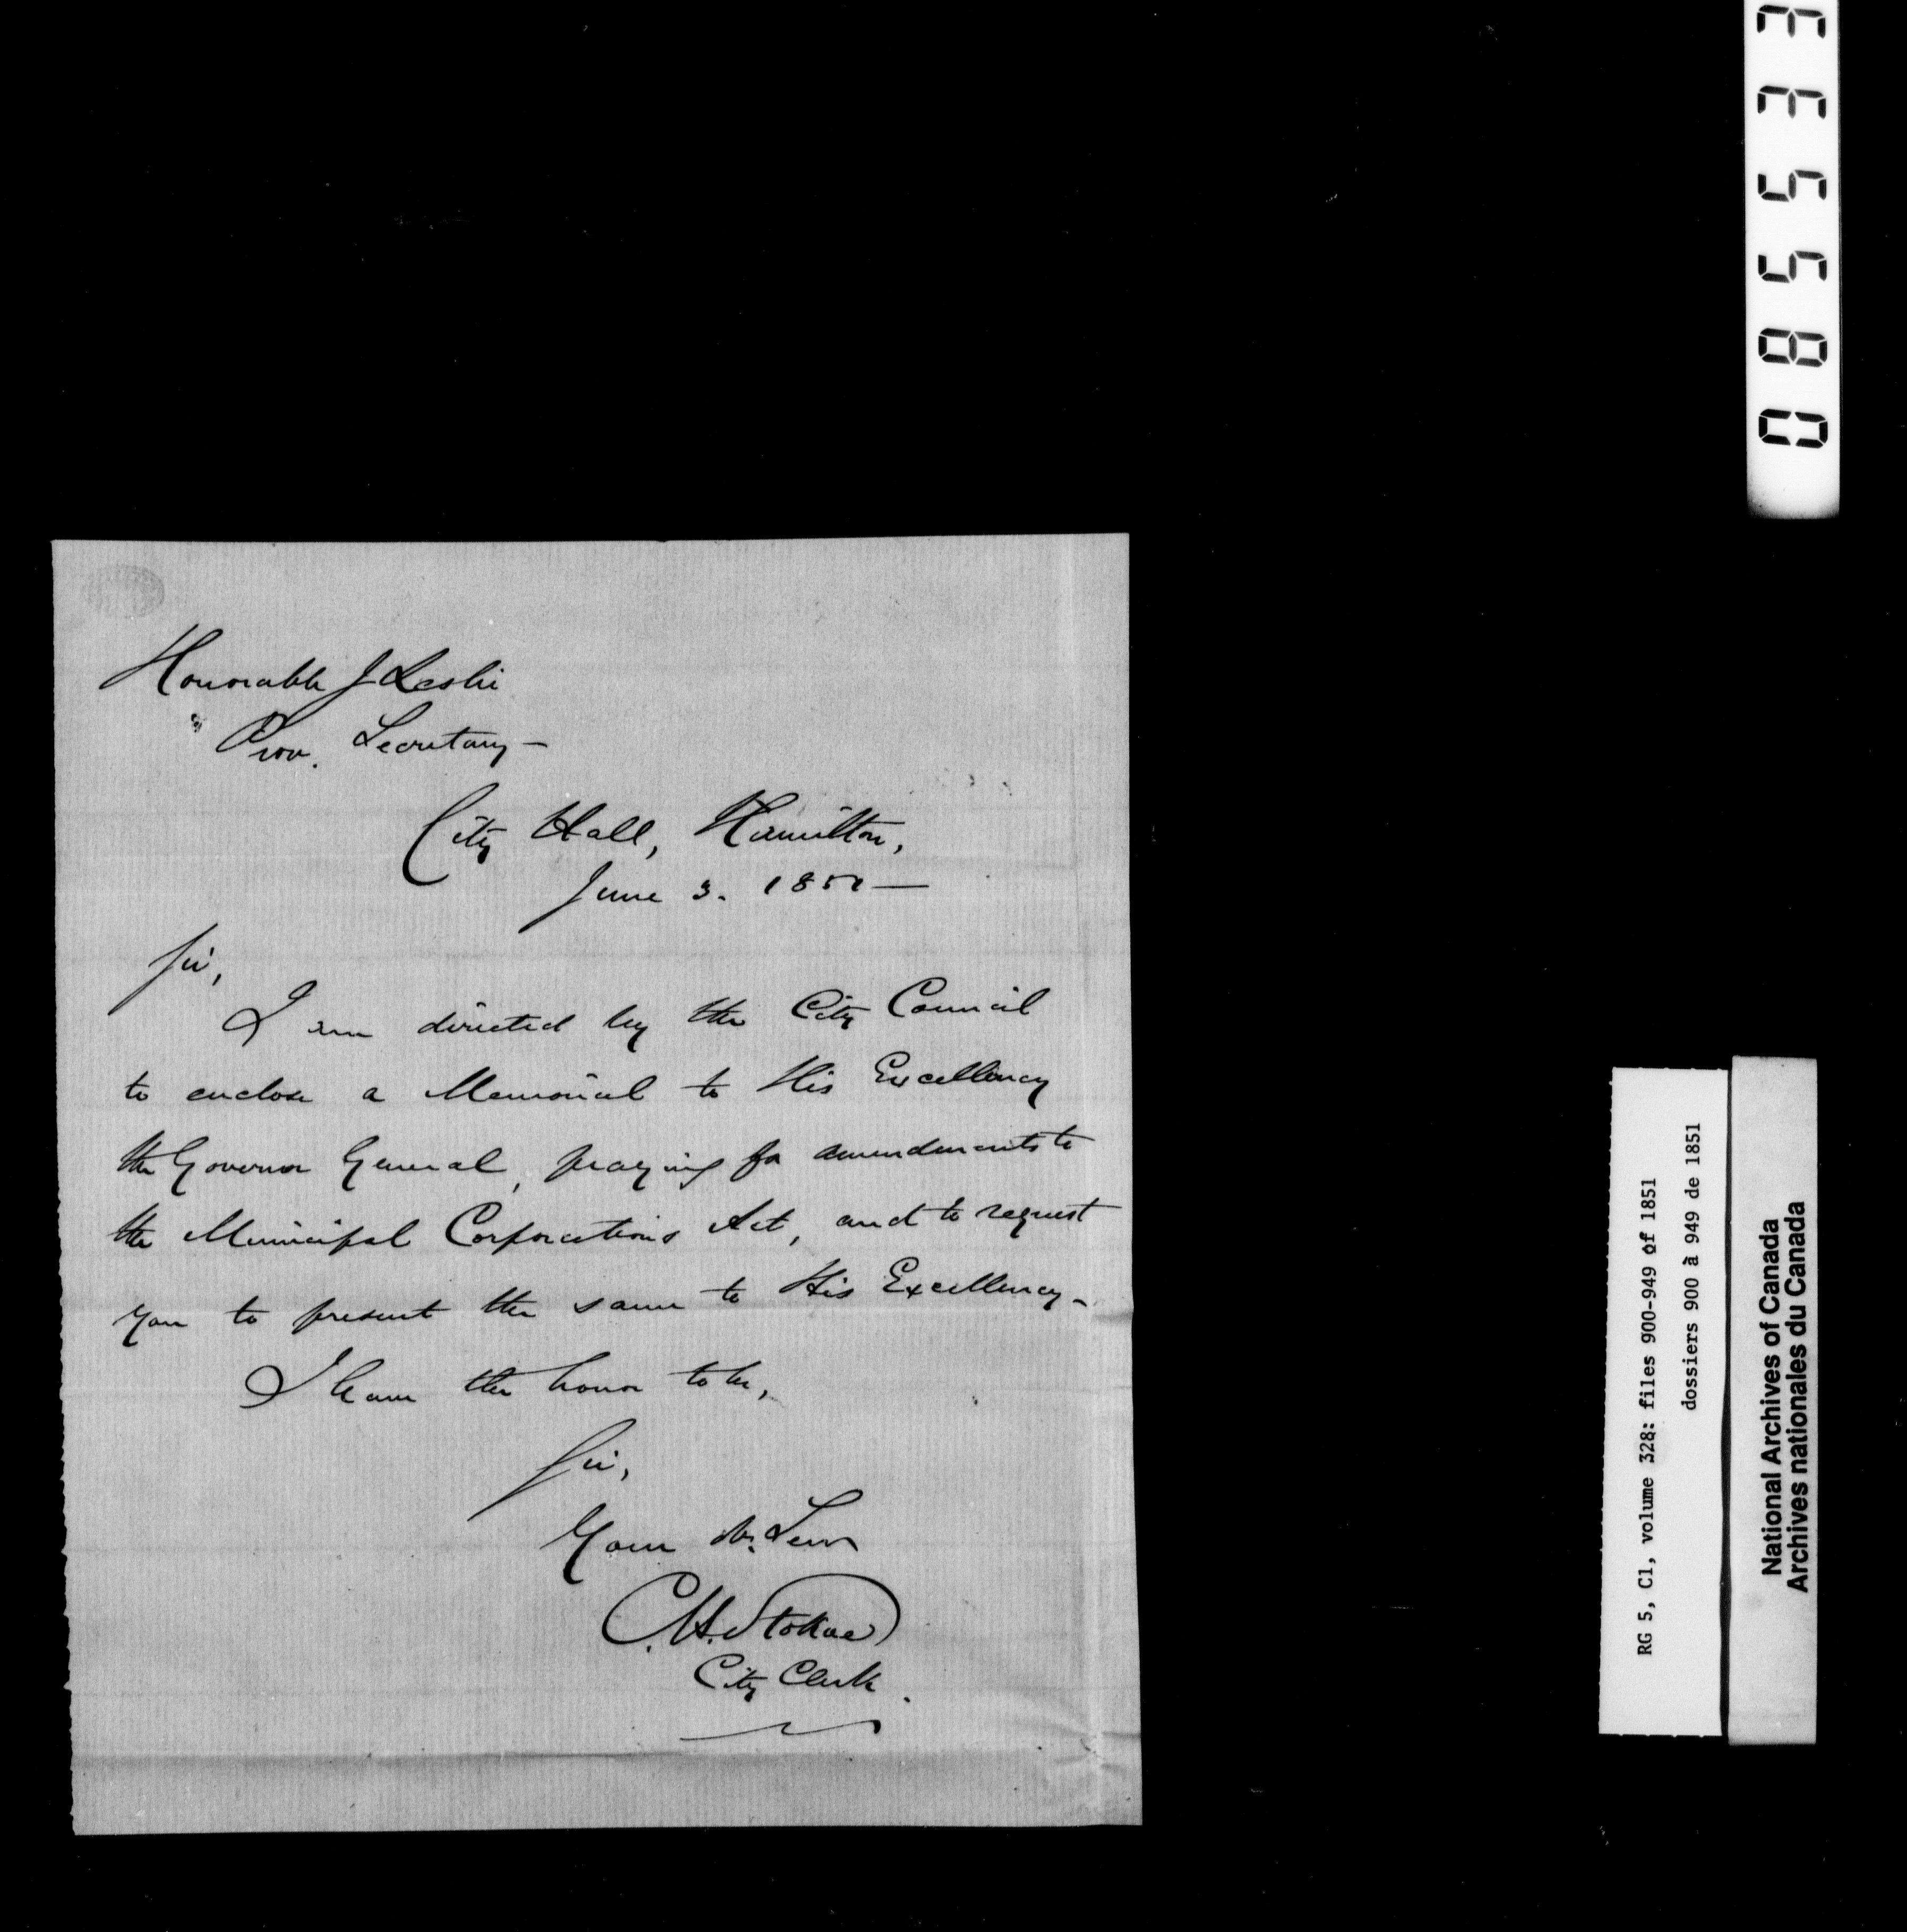 Honorable J Leslie
Prov. Secretary —
City Hall, Hamilton,
June 3. 1851 —
Sir,
I am directed by the City Council
to enclose a Memorial to His Excellency
the Governor General, praying for amendments to
the Municipal Corporations Act, and to request
you to present the same to His Excellency –
I have the honor to be,
Sir,
Your Ob. Serv
C.H. Stokoe
City Clerk.
085533
RG 5, C1, volume 328: files 900-949 of 1851
dossiers 900 à 949 de 1851
National Archives of Canada
Archives nationales du Canada